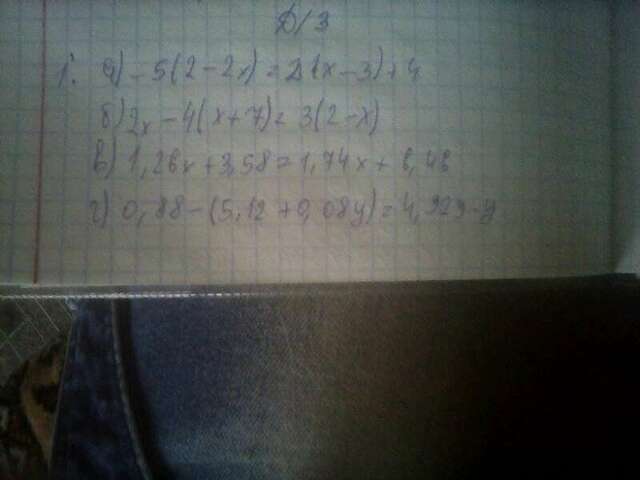 Д/З
1. а) -5(2-2x)=2(x-3)+4
б) 2x-4(x+7)=3(2-x)
в) 1,26x+3,58=1,74x+6,46
г) 0,88-(5,12+0,08y)=4,92y-y